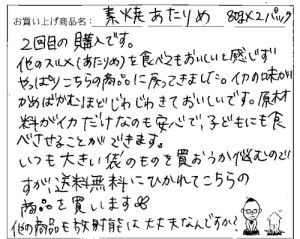 お買い上げ商品名： 素焼あたりめ 80g×2パック
2回目の購入です。
他のスルメ(あたりめ)を食べてもおいしいと感じず
やっぱりこちらの商品に戻ってきました。イカの味が
かめばかむほどじわじわきておいしいです。原材
料がイカだけなのも安心で、子どもにも食
べさせることができます。
いつも大きい袋のものを買おうか悩むので
すが送料無料にひかれてこちらの
商品を買います
他の商品も放射能は大丈夫なんですか？